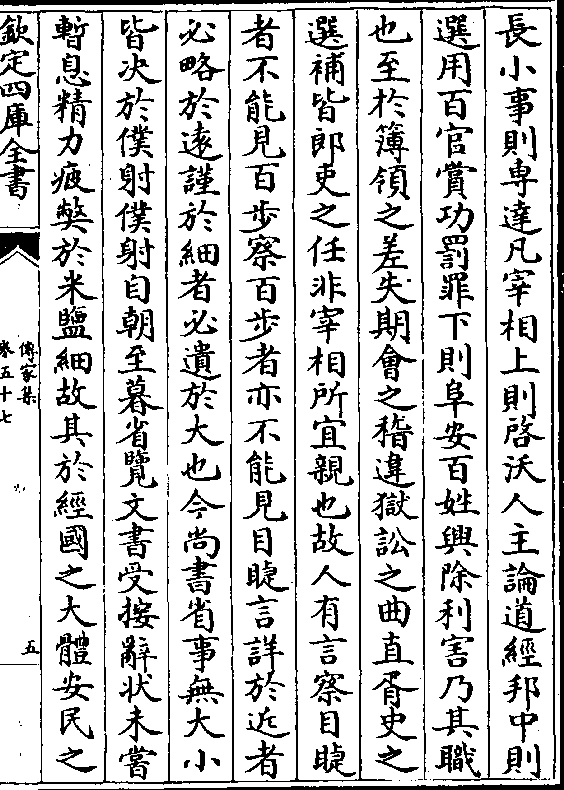 長小事則専達凡宰相上則啓沃人主論道經邦中則
選用百官賞功罰罪下則阜安百姓興除利害乃其職
也至於簿領之差失期會之稽違獄訟之曲直胥史之
選補皆郎吏之任非宰相所宜親也故人有言察目睫
者不能見百步察百步者亦不能見目睫言詳於近者
必略於遠謹於細者必遺於大也今尚書省事無大小
皆決於僕射僕射自朝至暮省覽文書受按辭状未嘗
暫息精力疲弊於米鹽細故其於經國之大體安民之
欽定四庫全書
傳家集
卷五十七
五